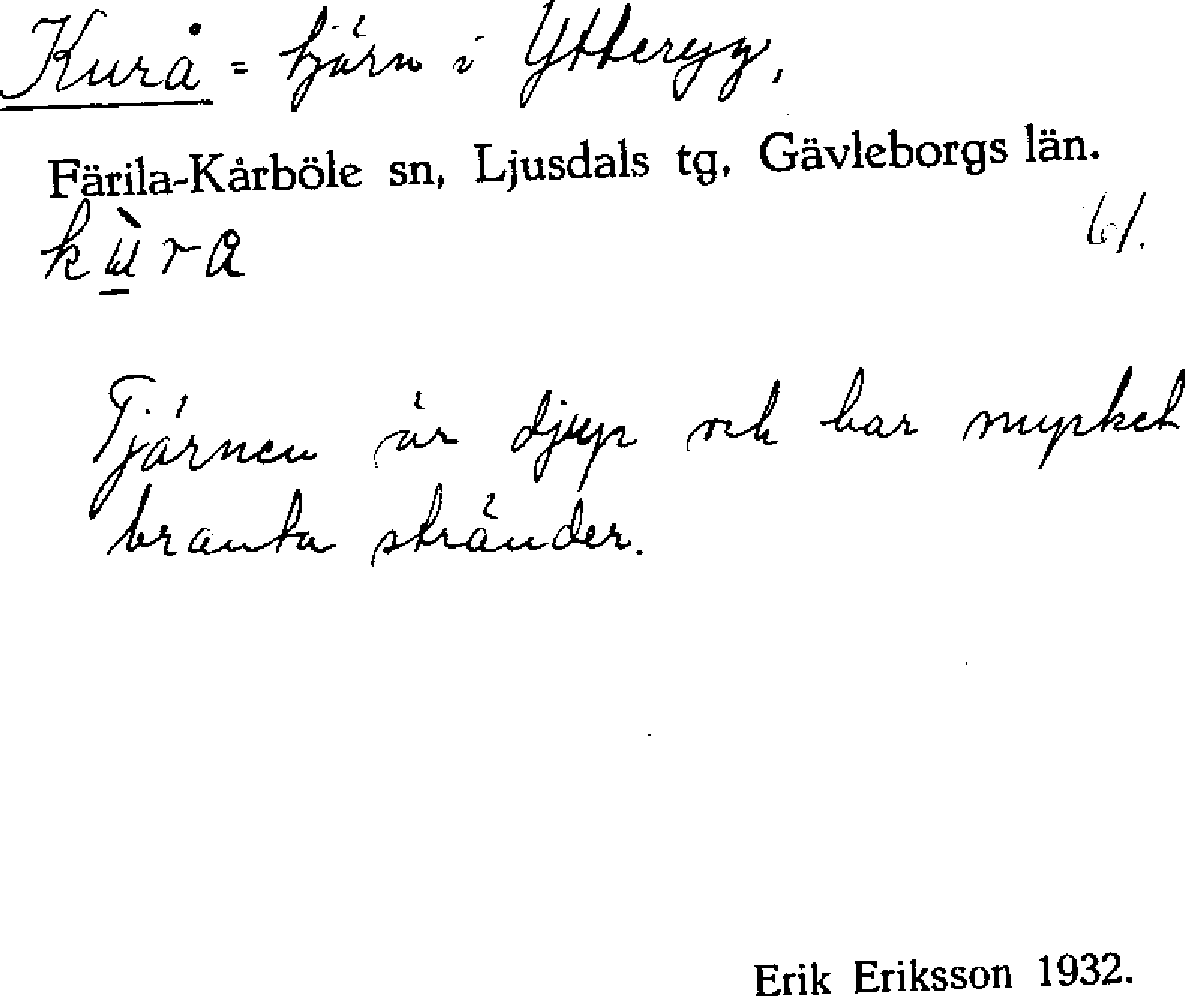 Kurå = tjärn i Ytterygg,
Färila-Kårböle sn, Ljusdals tg, Gävleborgs län.
61.
Tjärnen är djup och har mycket
branta stränder.
Erik Eriksson 1932.